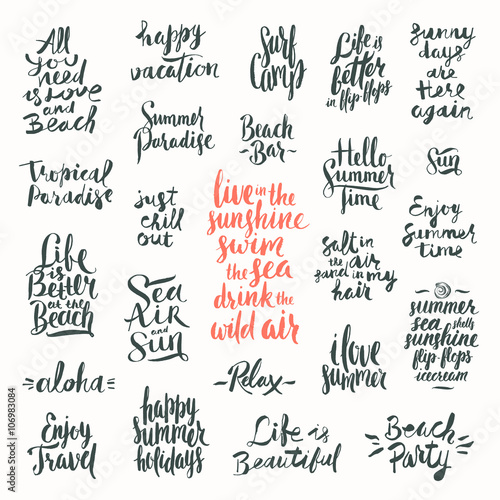 All
You
need
is Love
and
Beach
happy
vacation
Surf
Camp
Life is
better
in flip-flops
sunny
days
are
Here
again
Summer
Paradise
Beach
-Bar-
Hello
Summer
Time
Sun
Tropical
Paradise
just
chill
out
live in the
sunshine
swim
the sea
drink the
wild air
Enjoy
Summer
time
Life
is
Better
at the
Beach
Sea
Air
and
Sun
salt in
the air
sand in my
hair
summer
sea shells
sunshine
flip-flops
icecream
-aloha-
-Relax-
i love
summer
Enjoy
Travel
happy
summer
holidays
Life is
Beautiful
Beach
Party
Adobe Stock | #106983084